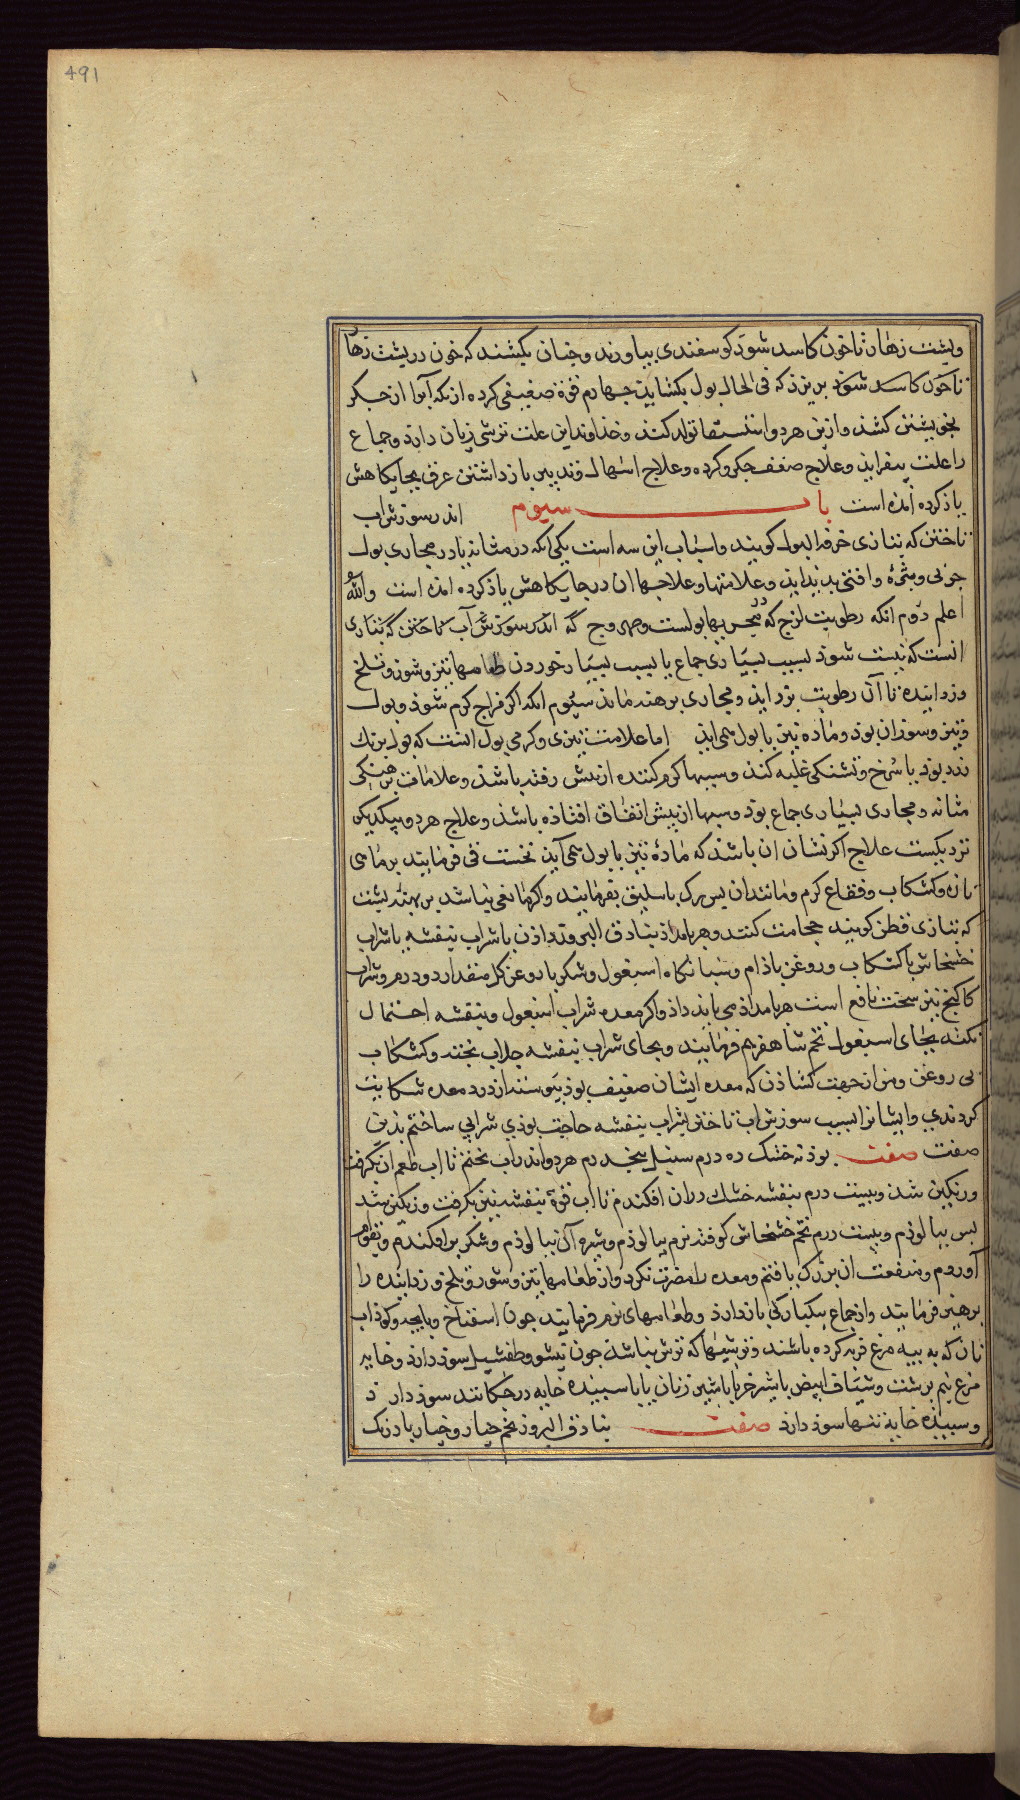 491
وپشت زهار تا خون کاسد شود کوسفندی بیاورند وچنان بکشند که خون در پشت زهار
تا خون کاسد شود بریزد که فی الحال بول بکشاید چهارم قوة ضعیفی کرده از بکه آبرا از جکر
بخویشتن کشد وازین هردو استسقا تولد کند وخداوند این علت ترشی زیان دارد وجماع
را علت بیفزاید وعلاج ضعف جکر وکرده وعلاج اسهال وذوبین بازداشتن عرق بجایکاهش
یاذ کرده آمده است باب سیوم اندر سوزش اب
تاختن که بتازی حرقة البول کویند واسباب این سه است یکی انکه در مثانه یا در مجاری بول
جربی وبثرهٔ وافتی بدید اید وعلامتها وعلاجها ان در جایکاهش یاذ کرده امده است والله
اعلم دوم انکه رطوبت لزج که در مجریها بولست وممزوج که اندر سوزش آب تاختن که بتازی
انست که نیست شود بسبب بسیاری جماع یا بسبب بسیار خوردن طعامها تیز وشور وتلخ
وزداینده تا آن رطوبت بزداید ومجاری برهنه ماند سیوم انکه اکر مزاج کرم شود وبول
وتیز وسوزان بود وماده تیز با بول همی اید اما علامت تیزی وکرمی بول انست که بول برنك
زرد بود یا سرخ وتشنکی غلبه کند وسببها کرم کننده از پیش رفته باشد وعلامات برهنکی
مثانه ومجاری بسیاری جماع بود وسببها از پیش اتفاق افتاده باشد وعلاج هردو بیکدیکر
نزدیکست علاج اکر نشان ان باشد که مادهٔ تیز با بول همی آید نخست قی فرمایند بر ماهی
تازه وکشکاب وفقاع کرم ومانند ان پس رک باسلیق بفرمایند واکر مانعی نباشد بر پشت
که بتازی قطن کویند حجامت کنند وهر بامداد بنادق البزور دادن با شراب بنفشه یا شراب
خشخاش یا کشکاب وروغن باذام وشبانکاه اسبغول وشکر با روغن کل مقدار دو درم وشراب
کاکنج نیز سخت نافع است هر بامداد می باید داد واکر معده شراب اسبغول وبنفشه احتمال
نکند بجای اسبغول تخم شاهفرم فرمایند وبجای شراب بنفشه جلاب نجند وکشکاب
بی روغن ومن از جهت کشاذن که معده ایشان ضعیف بود پیوسته از درد معده شکایت
کردندی وایشانرا بسبب سوزش اب تاختن بشراب بنفشه حاجت بوذی شرابی ساختم بذین
صفت صفت بوذنه خشک ده درم سنبل پنجدرم هردو اندر اب بختم تا اب طعم ان بکرفت
ورنکین شد وبیست درم بنفشه خشك در ان افکندم تا اب قوة بنفشه نیز بکرفت ورنکین شد
پس ببالوذم وبیست درم تخم خشخاش کوفته نرم ببالوذم وشیره آن ببالوذم وشکر بر افکندم وبقوام
آوردم ومنفعت ان بزرک یافتم ومعده را مضرت نکرد واز طعامها تیز وشور وتلخ وزداینده را
پرهیز فرمایند واز جماع بیکبارکی بازدارد وطعامهای نرم فرمایند جون اسفناخ وپایچه وکوذاب
نان که به پیه مرغ فربه کرده باشند وترشیها که ترش نباشد جون نیشو وطفشیل سود دارد وخایه
مرغ نیم برشت وشیاف ابیض با شیر خر یا با شیر زنان یا با سبیده خایه در جکانند سود دارد
وسبیذه خایه تنها سود دارد صفت بنادق البزور تخم خیار وخیار بادرنک